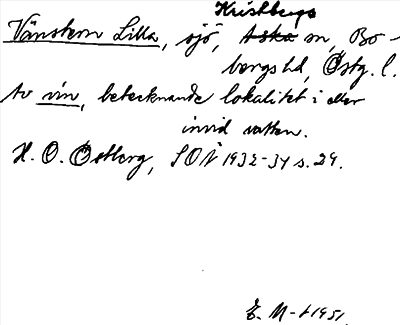 Kristbergs
Vänstern Lilla, sjö, Aska sn, Bo-
bergs hd, Östg. l.
Av vin, betecknande lokalitet i eller
invid vatten.
H. O. Östberg, SOV 1932-34 s. 29.
E. M-t 1951.